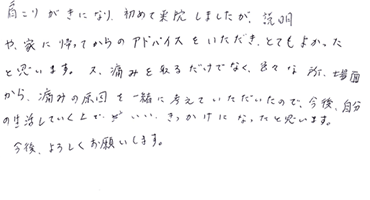 肩こりがきになり、初めて来院しましたが、説明
や、家に帰ってからのアドバイスをいただき、とてもよかった
と思います。又、痛みを取るだけでなく、色々な所、場面
から、痛みの原因を一緒に考えていただいたので、今後、自分
の生活していく上で、がいい、きっかけになったと思います。
今後、よろしくお願いします。